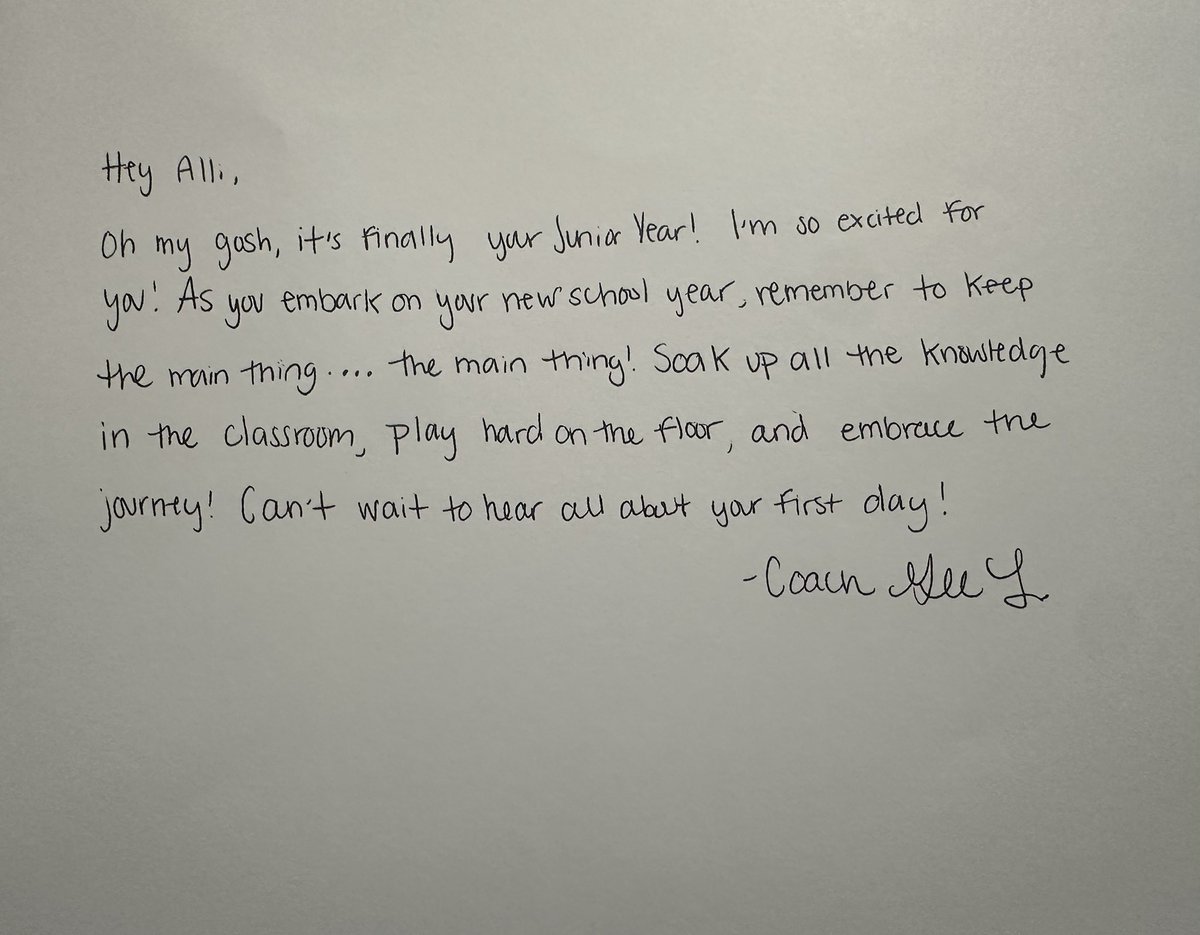 Hey Alli,
Oh my gosh, it's finally your Junior Year! I'm so excited for
you! As you embark on your new school year, remember to keep
the main thing.... the main thing! Soak up all the knowledge
in the classroom, play hard on the floor, and embrace the
journey! Can't wait to hear all about your first day!
-Coach Gee